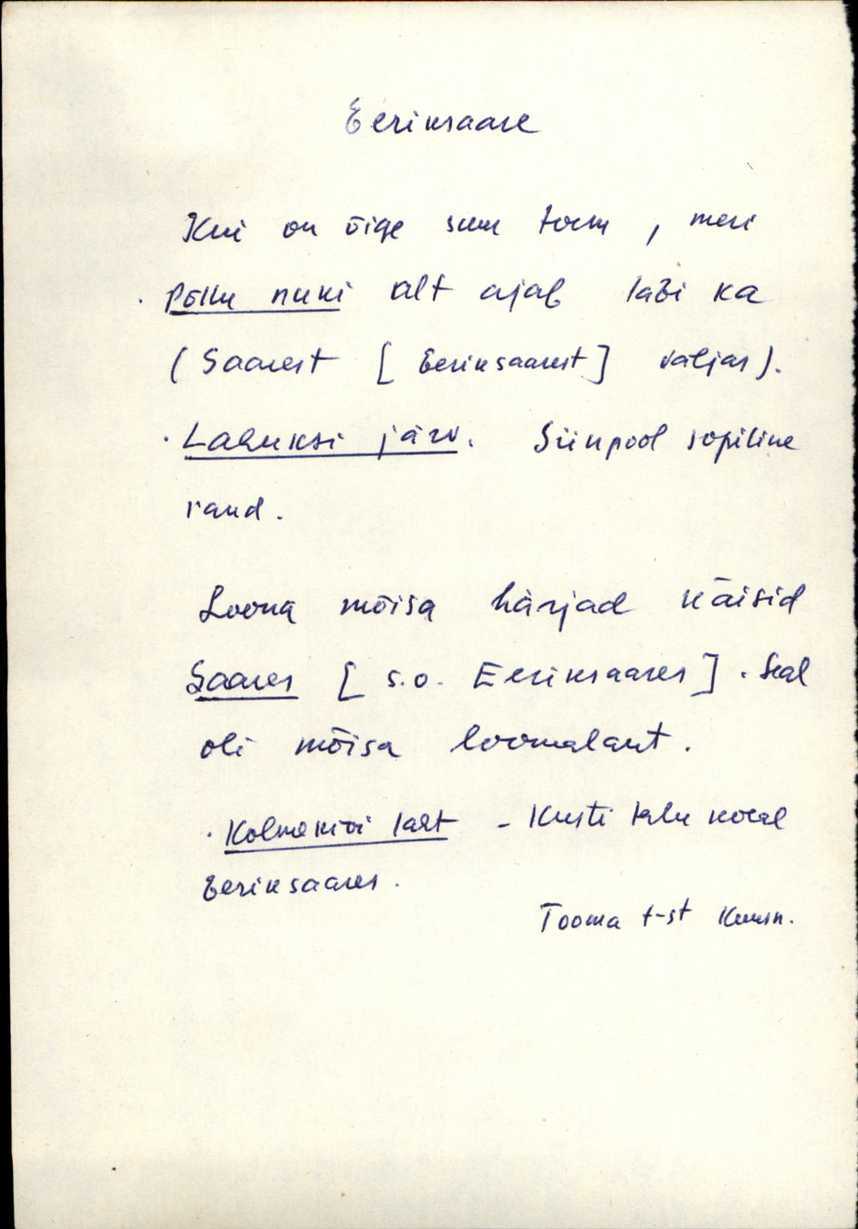 Eeriksaare
Kui on õige suur torm, meri
Põllu nuki alt ajab läbi ka
(Saarest [Eeriksaarest] väljas).
Laguksi järv. Siinpool sopiline
rand.
Loona mõisa härjad käisid
Saares [s.o. Eeriksaares]. Seal
oli mõisa loomalaut.
Kolmekivi laht - Kusti talu kohal
Eeriksaares.
Tooma t-st Kuusn.